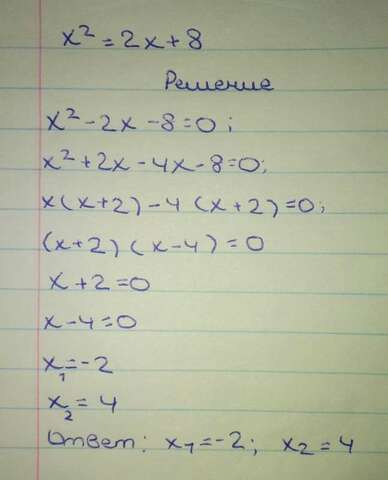 x² = 2x + 8
Решение
x² - 2x - 8 = 0;
x² + 2x - 4x - 8 = 0;
x(x+2) - 4(x+2) = 0;
(x+2)(x-4) = 0
x + 2 = 0
x - 4 = 0
x₁ = -2
x₂ = 4
Ответ: x₁ = -2; x₂ = 4